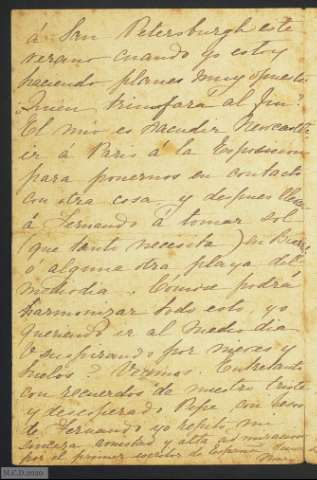 á San Petersburgh este
verano cuando yo estoy
haciendo planes muy opuestos
¿Quien trinofará al fin?
El mio es sacudir Newcastle
ir á Paris á la Exposicion
para ponernos en contacto
con otra cosa y despues llevar
á Fernando á tomar sol
(que tanto necesita) en
ó alguna otra playa del
mediodia. Cómose podrá
harmonizar todo esto, yo
queriendo ir al Medio dia
V suspirando por nieves y
hielos? Veremos. Entretanto
con recuerdos de nuestro triste
y desesperado Pepe, con besos
de Fernando yo repito mi
sincera amistad y alta admiracion
por el primer escritor de España
N.C.D.2020